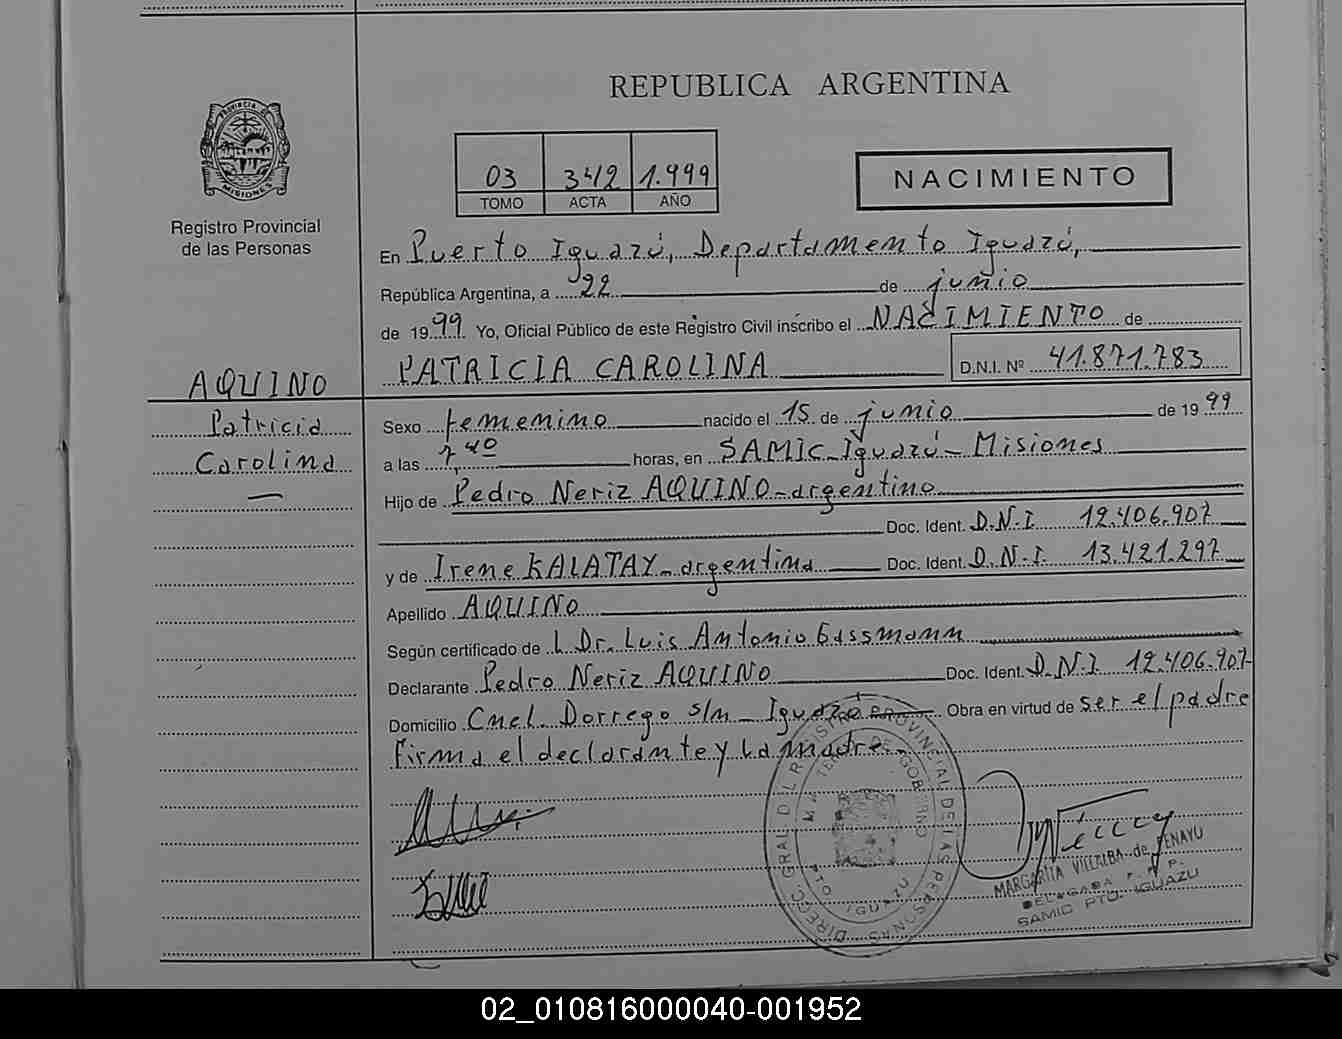 REPUBLICA ARGENTINA
PROVINCIA DE MISIONES
Registro Provincial
de las Personas
03 342 1.999
TOMO ACTA AÑO
NACIMIENTO
En Puerto Iguazú, Departamento Iguazú,
República Argentina, a 22 de junio
de 1999 Yo, Oficial Público de este Registro Civil inscribo el NACIMIENTO de
PATRICIA CAROLINA D.N.I. Nº 41.871.783
AQUINO
Patricia
Carolina
Sexo femenino nacido el 15 de junio de 1999
a las 7,40 horas, en SAMIC-Iguazú-Misiones
Hijo de Pedro Neriz AQUINO-argentino
Doc. Ident. D.N.I 12.406.907
y de Irene KALATAY-argentina Doc. Ident. D.N.I. 13.421.297
Apellido AQUINO
Según certificado de L Dr. Luis Antonio Gassmann
Declarante Pedro Neriz AQUINO Doc. Ident. D.N.I 12.406.907
Domicilio Cnel. Dorrego s/n - Iguazú Obra en virtud de ser el padre
firma el declarante y la madre.-
DIRECC. GRAL DEL REGISTRO PROVINCIAL DE LAS PERSONAS
DE GOBIERNO
PTO IGUAZU
MARGARITA VILLALBA de PENAYO
DELEGADA
SAMIC PTO. IGUAZU
02_010816000040-001952